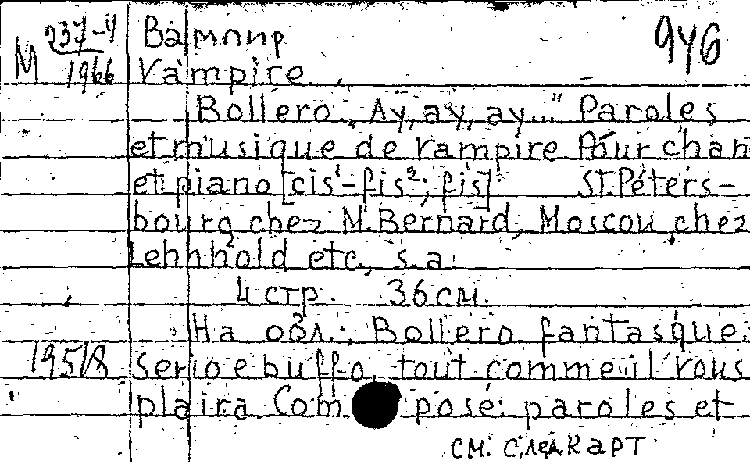 М 237-4 Вампир 946
1966 Vampire.
Bollero „Ay, ay, ay..." Paroles
et musique de Vampire Pour chan
et piano [cis¹-fis²; fis] St. Péters-
bourg chez M. Bernard, Moscou chez
Lehnhold etc., s.a.
4 стр. 36 см.
На обл.: Bollero fantasque:
19518 serio e buffo, tout comme il vous
plaira. Com posé: paroles et
см. след карт